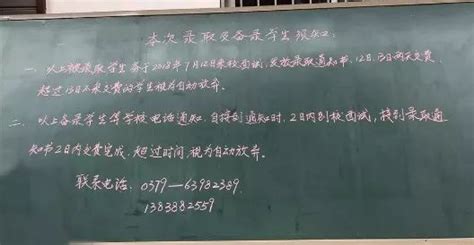 本次录取及备录学生须知:
一、以上被录取学生务于2018年7月12日来校面试,发放录取通知书,12日、13日两天交费,
超过13日不来交费的学生视为自动放弃。
二、以上备录学生等学校电话通知,自接到通知时,2日内到校面试,接到录取通
知书2日内交费完成,超过时间,视为自动放弃。
联系电话:0379—63982389
1383882559